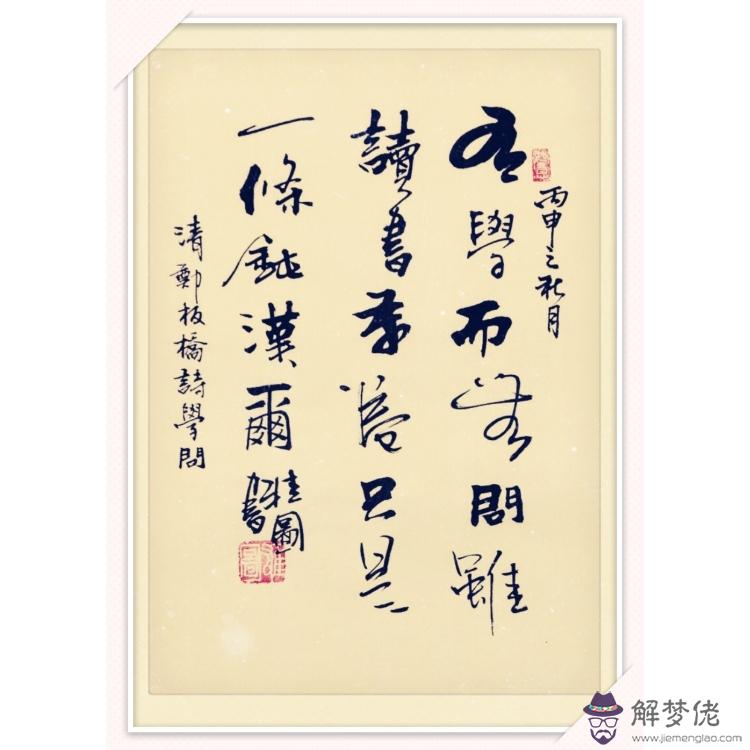 丙申之秋月
有學而無問雖
讀書萬卷只是
一條鈍漢爾
清鄭板橋詩學問
解梦佬
www.jiemenglao.com